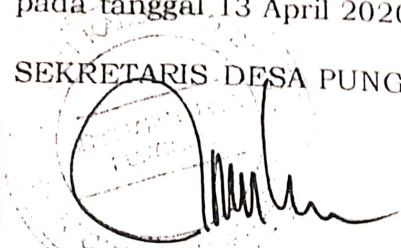 pada tanggal 13 April 2020
SEKRETARIS DESA PUNG